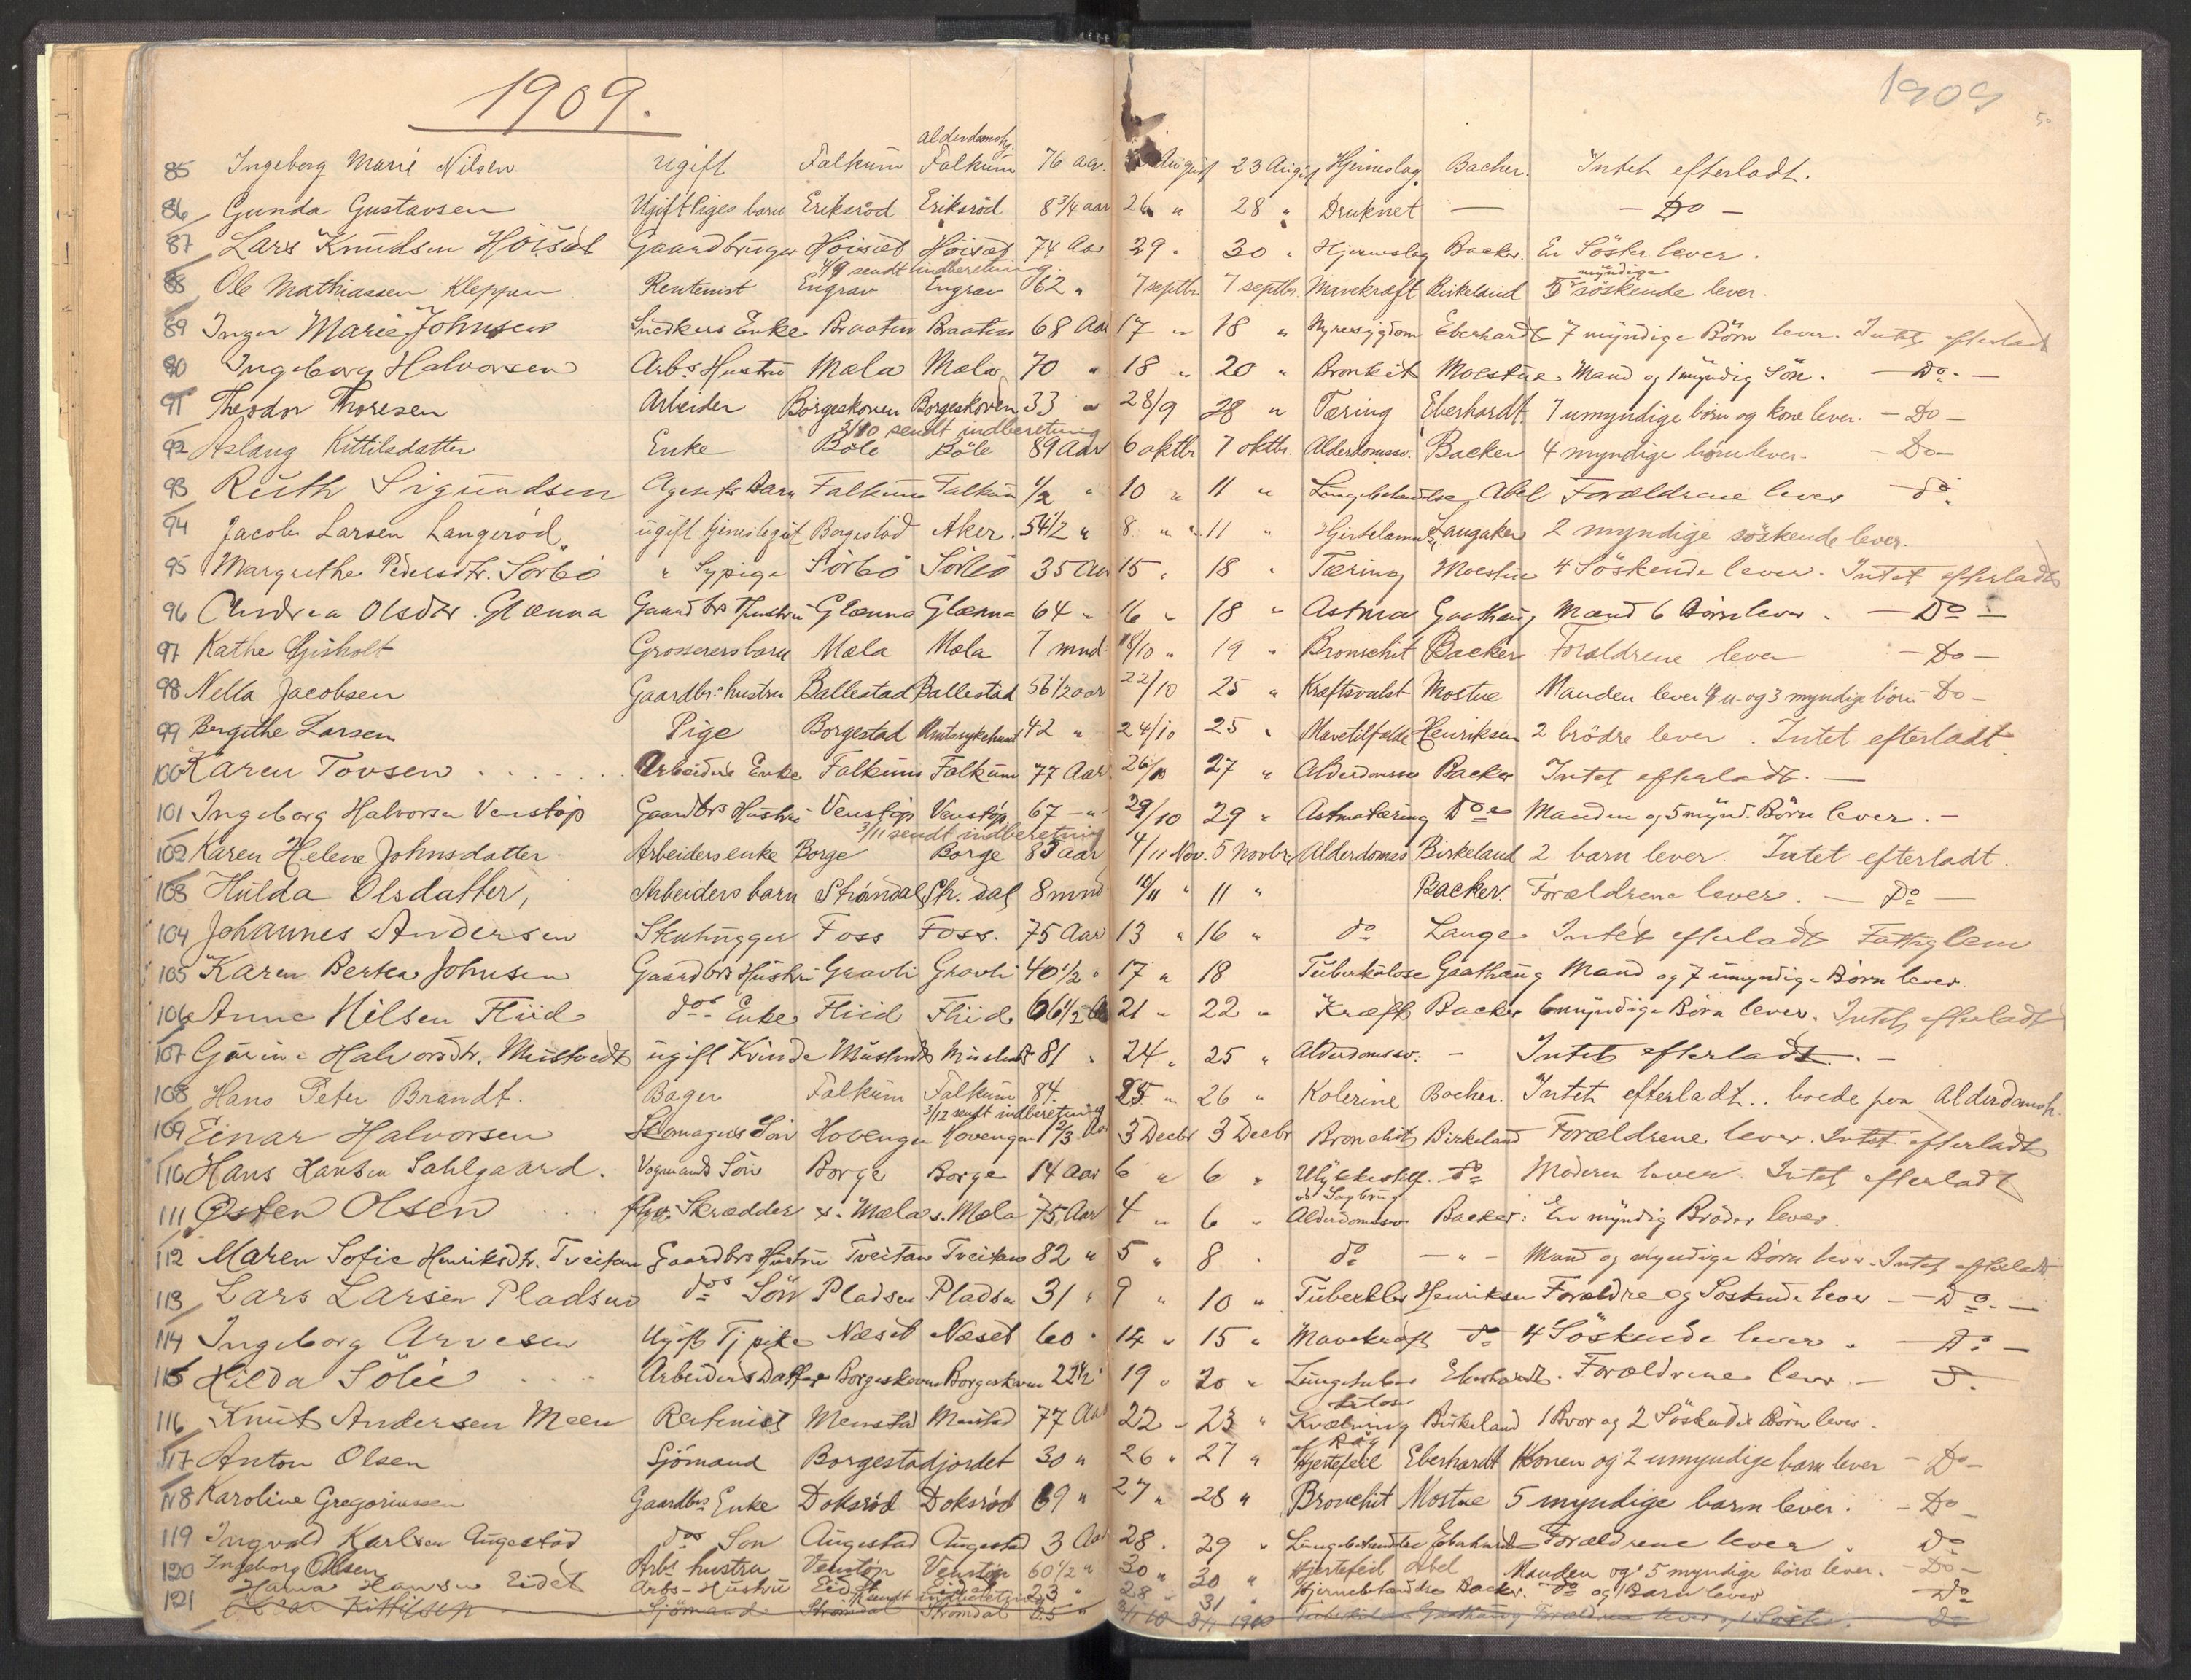 1909.
1909
85 Ingeborg Marie Nilsen ugift Falkum alderdomshj. Falkum 76 aar. August 23 August Hjerneslag Backer. Intet efterladt.
86 Gunda Gustavsen Ugift Piges barn Eriksröd Eriksröd 8 3/4 aar 26 " 28 " Druknet — — Do —
87 Lars Knudsen Höisæt Gaardbruger Höisæt Höisæt 74 Aar 29 " 30 " Hjerneslag Backer. En Söster lever.
4/9 sendt indberetning
88 Ole Mathiassen Kleppen Rentenist Engrav Engrav 62 " 7 septbr 7 septbr. Mavekræft Birkeland 5 myndige söskende lever.
89 Inger Marie Johnsen Snedkers Enke Braaten Braaten 68 Aar 17 " 18 " Nyresygdom Eberhardt 7 myndige Börn lever. Intet efterladt
90 Ingeborg Halvorsen Arbs Hustru Mæla Mæla 70 " 18 " 20 " Bronkit Moestue Mand og 1 myndig Sön. — Do. —
91 Theodor Thoresen Arbeider Börgeskoven Borgeskoven 33 " 28/9 28 " Tæring Eberhardt. 7 umyndige börn og kone lever. — Do —
3/10 sendt indberetning
92 Aslaug Kittilsdatter Enke Böle Böle 89 Aar 6 oktbr 7 oktbr. Alderdomssv. Backer 4 myndige börn lever. — Do —
93 Ruth Sigundsen Agents Barn Falkum Falkum 1/2 " 10 " 11 " Lungebetændelse Abel Forældrene lever do
94 Jacob Larsen Langeröd ugift Borgestad Aker. 54 1/2 " 8 " 11 " Langaker 2 myndige söskende lever.
95 Margrethe Pedersdtr. Sörbö " Sypige Sörbö Sörbö 35 Aar 15 " 18 " Tæring Moestue 4 Söskende lever. Intet efterladt
96 Andrea Olsdtr. Glænna Gaardbrs Hustru Glænna Glænna 64 " 16 " 18 " Astma Gaathaug Mand 6 Börn lever. — Do —
97 Kathe Gisholt Grosserers barn Mæla Mæla 7 mnd. 18/10 " 19 " Bronschit Backer Forældrene lever — Do —
98 Nella Jacobsen Gaardbr: hustru Ballestad Ballestad 56 1/2 aar 22/10 25 " Kræftsvulst Mostue Manden lever 4 u. og 3 myndige börn — Do —
99 Bergithe Larsen Pige Borgestad Amtssykehuset 42 " 24/10 25 " Mavetilfælde Henriksen 2 brödre lever. Intet efterladt
100 Karen Tovsen . . . . . Arbeiders Enke Falkum Falkum 77 Aar 26/10 27 " Alderdomssv Backer Intet efterladt. —
101 Ingeborg Halvorsen Venstöp Gaardbrs Hustru Venstöp Venstöp 67 — " 29/10 29 " Astmatæring Do Manden og 5 mynd. Börn lever. —
3/11 sendt indberetning
102 Karen Helene Johnsdatter Arbeidersenke Borge Borge 85 aar 4/11 Nov. 5 Novbr. Alderdomss Birkeland 2 barn lever. Intet efterladt.
103 Hulda Olsdatter, Arbeiders barn Strömdal Str. dal 8 mnd 10/11 " 11 " Backer. Forældrene lever. — Do —
104 Johannes Andersen Stenhugger Foss Foss. 75 Aar 13 " 16 " do Lange Intet efterladt Fattiglem
105 Karen Bertea Johnsen Gaardbrs Hustru Gravli Gravli 40 1/2 " 17 " 18 Tuberkulose Gaathaug Mand og 7 umyndige Börn lever.
106 Anne Nilsen Fliid do Enke Fliid Fliid 66 1/2 Aar 21 " 22 " Kræft Backer 6 myndige Börn lever. Intet efterladt
107 Gurine Halvorsdtr. Mustvedt ugift Kvinde Mustvedt Mustvedt 81 " 24 " 25 " Alderdomssv: — Intet efterladt. —
108 Hans Peter Brandt. Bager Falkum Falkum 84. 25 " 26 " Kolerine Backer. Intet efterladt.. boede paa Alderdomsh.
3/12 sendt indberetning
109 Einar Halvorsen Skomagers Sön Hovengen Hovengen 1 2/3 Aar 3 Decbr 3 Decbr Bronchit Birkeland Forældrene lever. Intet efterladt
110 Hans Hansen Sahlgaard. Vognmands Sön Borge Borge 14 Aar 6 " 6 " Ulykkestilf. do Moderen lever. Intet efterladt
111 Østen Olsen . . . fhv: Skrædder s. Mæla s. Mæla 75 Aar 4 " 6 " Alderdomssv Backer: En myndig Broder lever.
112 Maren Sofie Henriksdtr. Tveitan Gaardbrs Hustru Tveitan Tveitan 82 " 5 " 8 " do — " — Mand og myndige Börn lever. Intet efterladt
113 Lars Larsen Pladsen do Sön Pladsen Pladsen 31 " 9 " 10 " Tuberkler Henriksen Forældre og Söskende lever — Do. —
114 Ingeborg Arvesen Ugift Tj pike Næset Næset 60 " 14 " 15 " Mavekræft do 4 Söskende lever. — Do —
115 Hilda Sölie . . . Arbeiders Datter Borgeskoven Borgeskoven 22 1/2 " 19 " 20 " Lungetuber Eberhardt. Forældrene lever —
116 Knut Andersen Meen Rentenist Menstad Menstad 77 Aar 22 " 23 " Kvælning af Røg Birkeland 1 Bror og 2 Söskende Börn lever.
117 Anton Olsen Sjömand Borgestadjordet 30 " 26 " 27 " Hjertefeil Eberhardt Konen og 2 umyndige barn lever — Do —
118 Karoline Gregoriussen Gaardbrs. Enke Doksröd Doksröd 69 " 27 " 28 " Bronchit Mostue 5 myndige barn lever. — Do
119 Ingvald Karlsen Augestad do Sön Augestad Augestad 3 Aar 28. 29 " Lungebetændelse Eberhardt Forældrene lever " Do
120 Ingeborg Olsen Arbs hustru Venstöp Venstöp 60 1/2 " 30 " 30 " Hjertefeil Abel Manden og 5 myndige börn lever. — Do —
121 Hansen Eidet Arbs- Hustru Eidet Eidet 23 " 28 " 31 " Hjernebetændelse Backer. do og 1 Barn lever Do
sendt indberetning
Kittilsen Sjömand Strömdal Strömdal 3/1 10 3/1 1910 Tuberkulose Gaathaug Forældrene lever og 1 Söster. Do